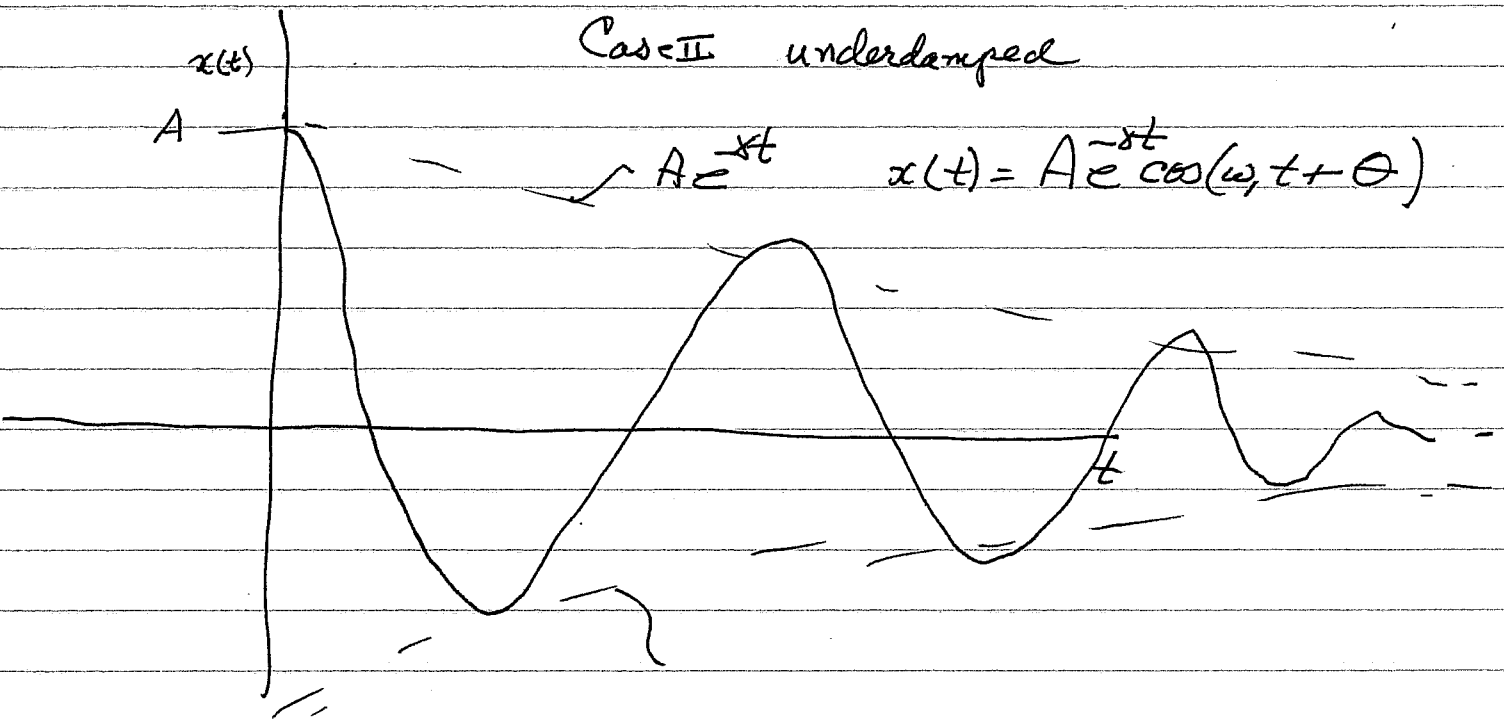 Case II underdamped
x(t)
A
Ae^{-γt} x(t) = Ae^{-γt} cos(ω₁t + θ)
t